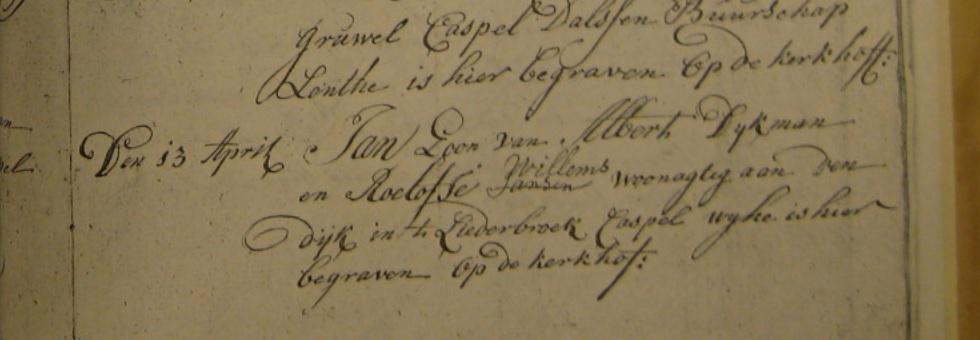 gruwel Caspel Dalssen Buurschap
Lenthe is hier begraven Op de kerkhoff:
Den 13 April Jan Zoon van Albert Dykman
en Roelofse Willems Jansen woonagtig aan den
dijk in 't Liederbroek Caspel wyhe is hier
begraven Op de kerkhof: